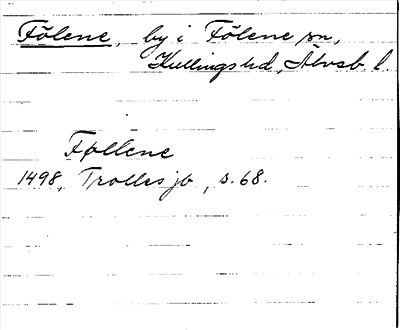 Fölene, by i Fölene sn,
Kullings hd, Älvsb. l.
Føllene
1498, Trolles jb, s. 68.